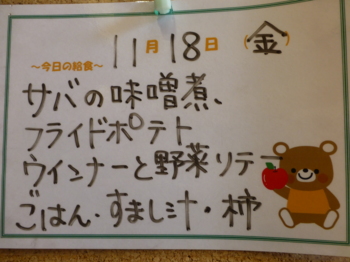 11月18日(金)
～今日の給食～
サバの味噌煮、
フライドポテト
ウインナーと野菜リテー
ごはん・すまし汁・柿